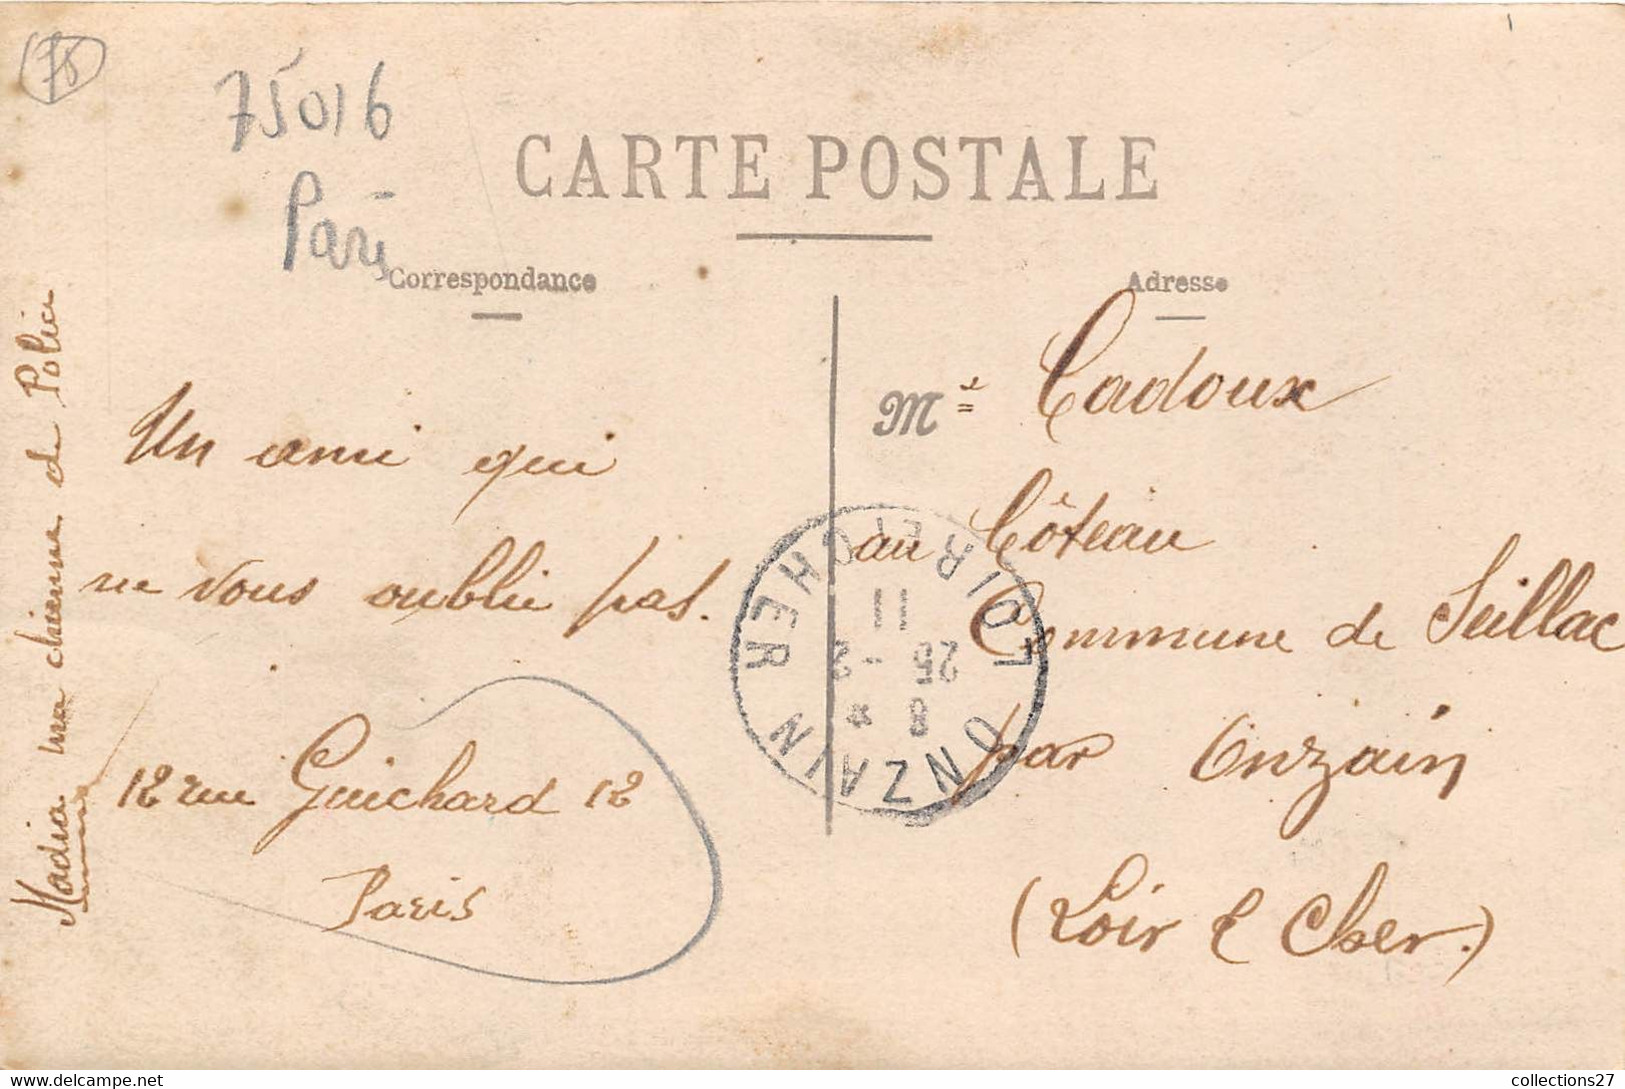 75
75016
Paris
CARTE POSTALE
Correspondance
Adresse
Un ami qui
ne vous oublie pas.
12 rue Guichard 12
Paris
Madia ma chienne de Police
Mr Cadoux
au Côteau
Commune de Seillac
par Onzain
(Loir & Cher.)
ONZAIN
LOIR ET CHER
8 *
25 -2
11
collections27